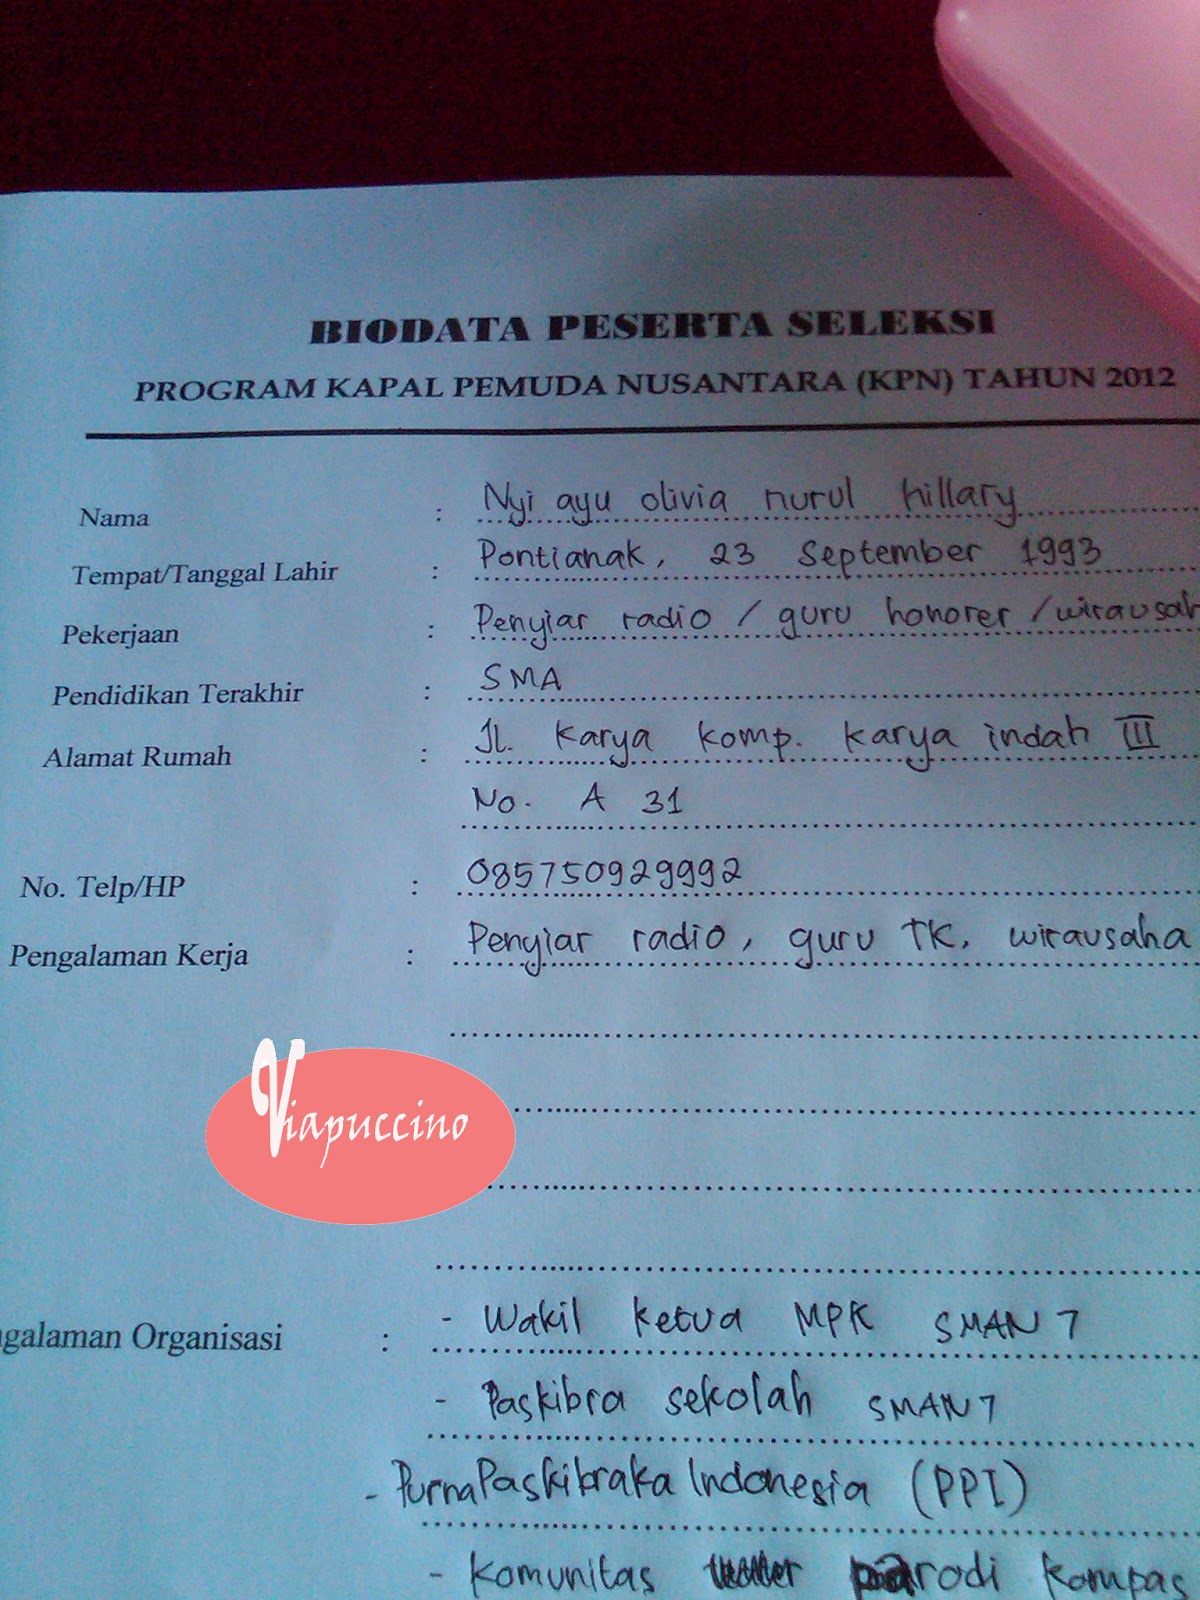 BIODATA PESERTA SELEKSI
PROGRAM KAPAL PEMUDA NUSANTARA (KPN) TAHUN 2012
Nama : Nyi ayu olivia nurul hillary
Tempat/Tanggal Lahir : Pontianak, 23 September 1993
Pekerjaan : Penyiar radio / guru honorer / wirausah
Pendidikan Terakhir : SMA
Alamat Rumah : Jl. Karya komp. karya indah III
No. A 31
No. Telp/HP : 085750929992
Pengalaman Kerja : Penyiar radio, guru TK, wirausaha
Viapuccino
ngalaman Organisasi : - Wakil ketua MPK SMAN 7
- Paskibra sekolah SMAN 7
- PurnaPaskibraka Indonesia (PPI)
- Komunitas parodi kompas